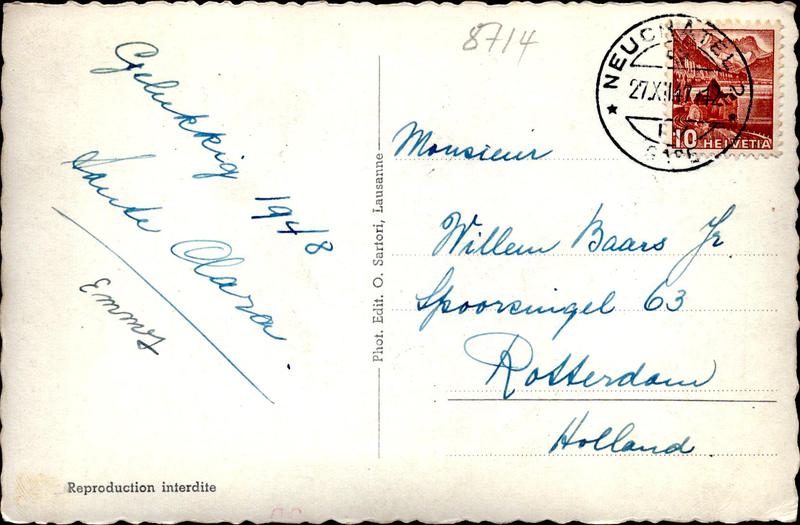 8714
Gelukkig 1948
Tante Clara.
Emmy
NEUCHATEL 2
27.XII.47
10 HELVETIA
Monsieur
Willem Baars Jr
Spoorsingel 63
Rotterdam
Holland
Phot. Edit. O. Sartori, Lausanne
Reproduction interdite